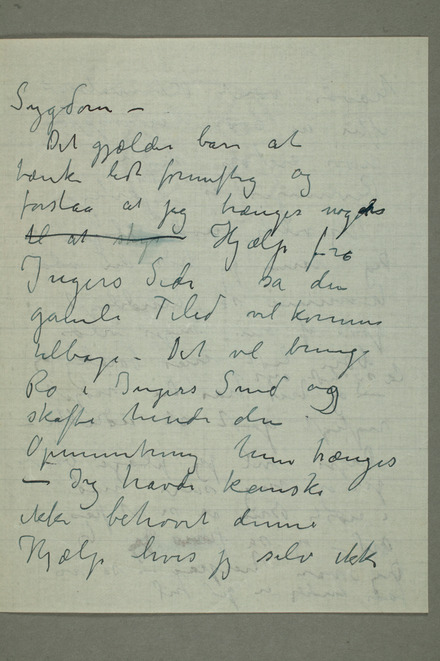 Sygdom –
Det gjælder bare at
tænke lidt fornuftig og
forstaa at jeg trænges noget
til at Hjælp fra
Ingers Side sa den
gamle Tilid vil komme
tilbage – Det vil bringe
Ro i Ingers Sind og
skaffe hende den
Opmuntring hun trænges
– Jeg havde kanske
ikke behøvet denne
Hjælp hvis jeg selv ikke